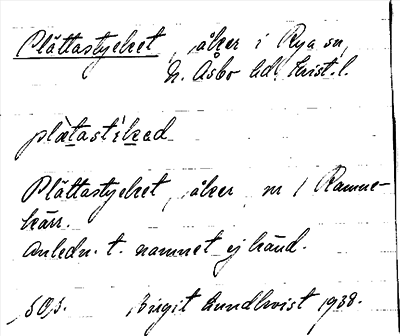 Plättastycket, åker i Rya sn,
N. Åsbo hd. Krist. l.
plætastikad
Plättastycket, åker, nr 1 Ramne-
kärr.
Anledn. t. namnet ej känd.
Birgit Lundkvist 1938.